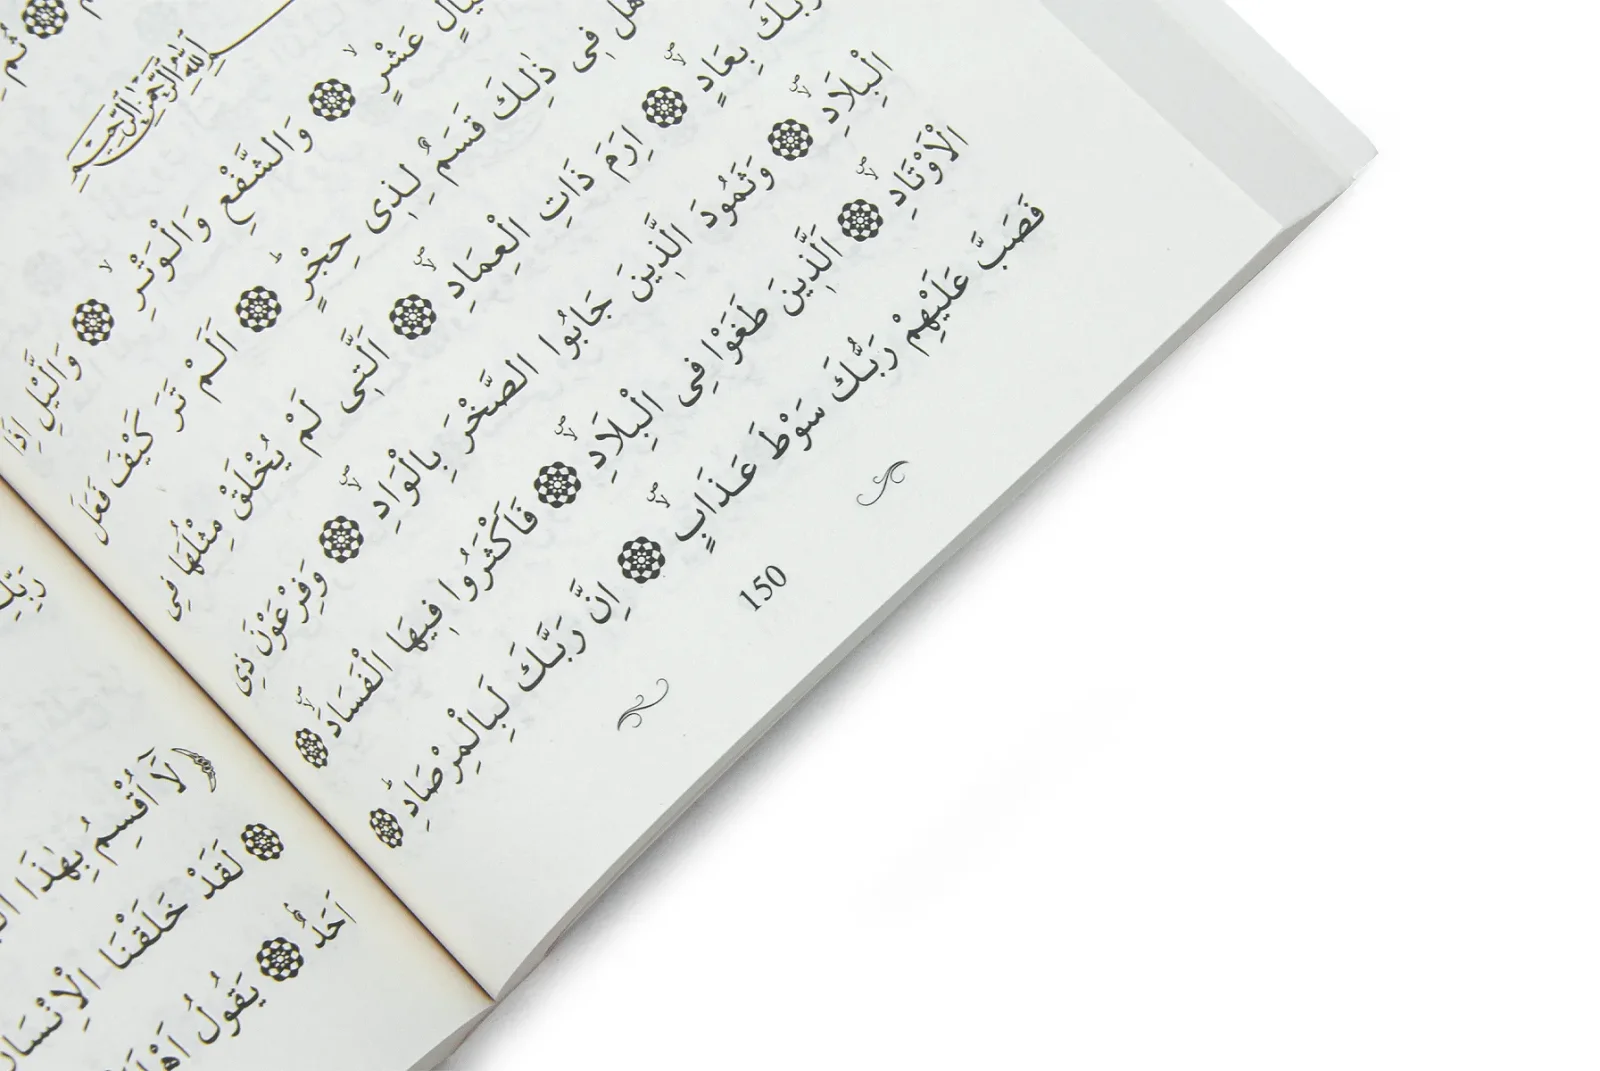 ثُمَّ
اللّٰهِ الرَّحْمٰنِ الرَّحِيمِ
عَشْرٍۙ وَالشَّفْعِ وَالْوَتْرِۙ وَالَّيْلِ اِذَا
هَلْ فِى ذٰلِكَ قَسَمٌ لِذِى حِجْرٍۜ اَلَمْ تَرَ كَيْفَ فَعَلَ
رَبُّكَ بِعَادٍۙۖ اِرَمَ ذَاتِ الْعِمَادِۙۖ اَلَّتِى لَمْ يُخْلَقْ مِثْلُهَا فِى
الْبِلَادِۙۖ وَثَمُودَ الَّذِينَ جَابُوا الصَّخْرَ بِالْوَادِۙۖ وَفِرْعَوْنَ ذِى
الْاَوْتَادِۙۖ اَلَّذِينَ طَغَوْا فِى الْبِلَادِۙۖ فَاَكْثَرُوا فِيهَا الْفَسَادَۙۖ
فَصَبَّ عَلَيْهِمْ رَبُّكَ سَوْطَ عَذَابٍۙۖ اِنَّ رَبَّكَ لَبِالْمِرْصَادِۜ
150
رَبِّكَ
لَآ اُقْسِمُ بِهٰذَا
لَقَدْ خَلَقْنَا الْاِنْسَانَ
اَحَدٌۢ يَقُولُ